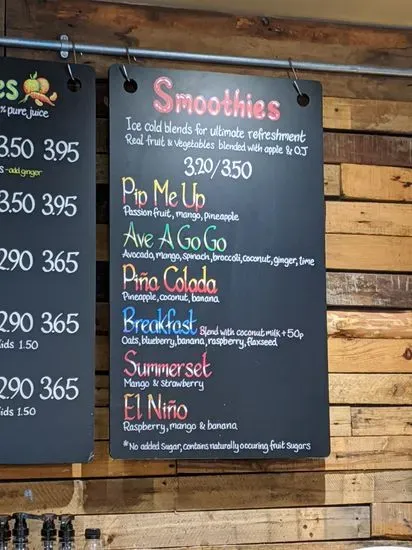 es
% pure juice
3.50 3.95
s - add ginger
3.50 3.95
2.90 3.65
2.90 3.65
ids 1.50
2.90 3.65
ids 1.50
Smoothies
Ice cold blends for ultimate refreshment
Real fruit & vegetables blended with apple & OJ
3.20/3.50
Pip Me Up
Passion fruit, mango, pineapple
Ave A Go Go
Avocado, mango, spinach, broccoli, coconut, ginger, lime
Piña Colada
Pineapple, coconut, banana
Breakfast Blend with coconut milk + 50p
Oats, blueberry, banana, raspberry, flaxseed
Summerset
Mango & strawberry
El Niño
Raspberry, mango & banana
*No added sugar, contains naturally occuring fruit sugars